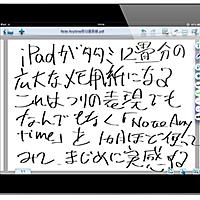 iPadがタタミ12畳分の
広大なメモ用紙になる
これはつりの表現でも
なんでもなく「Note Any
time」を1カ月ほど使って
みて、まじめに実感ね